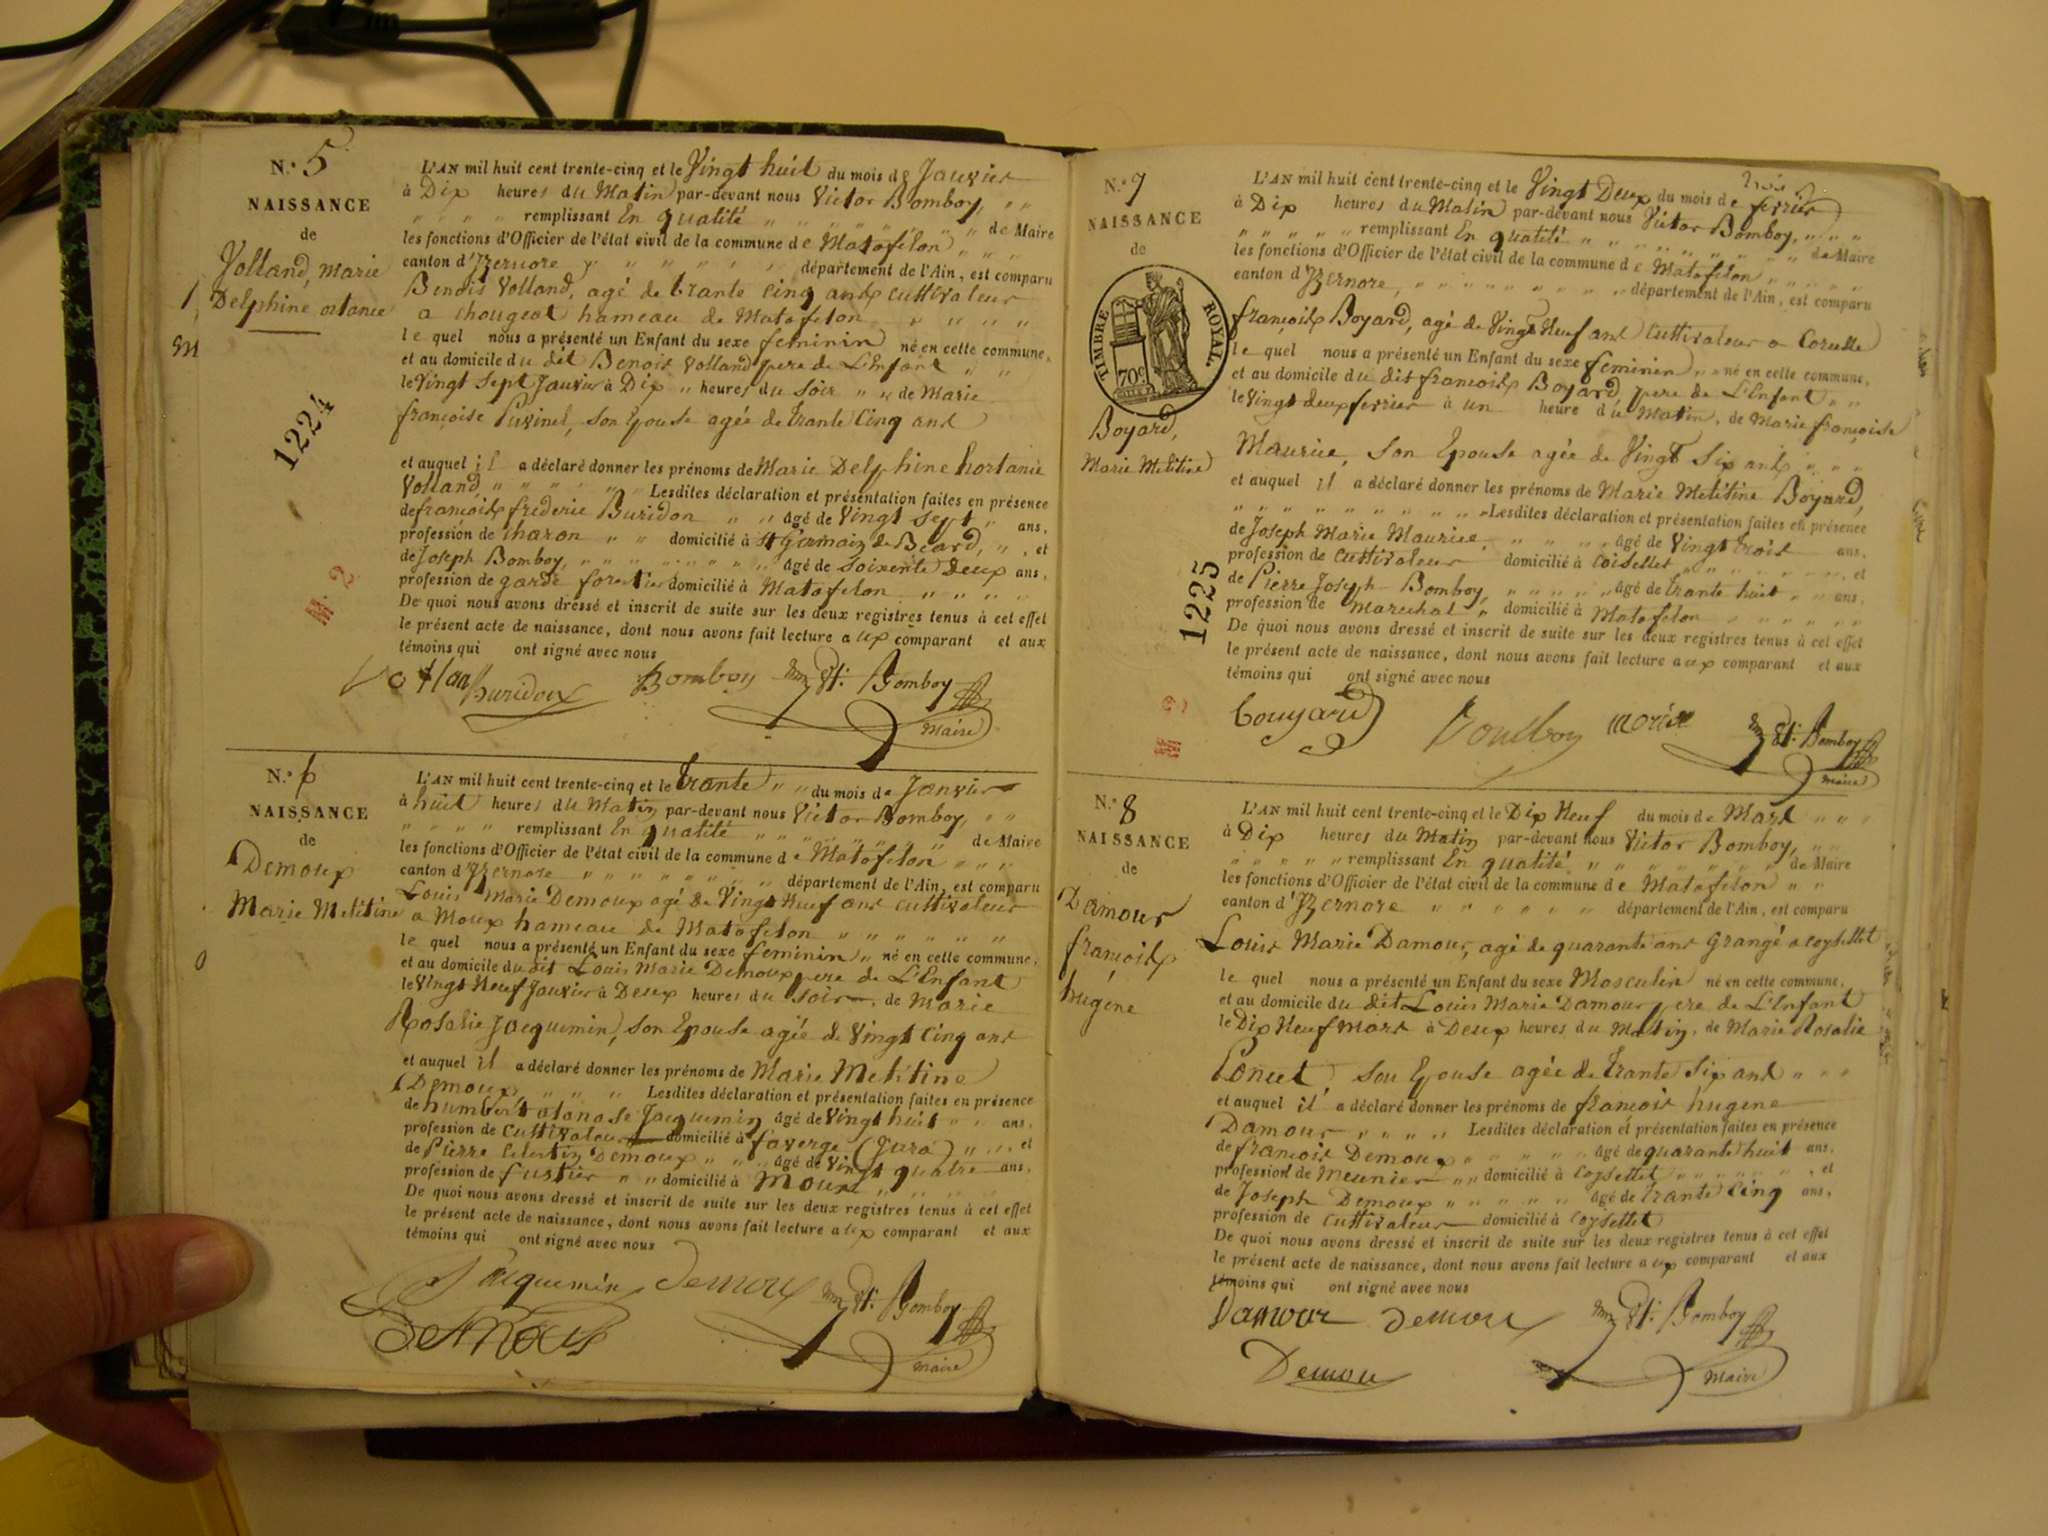 N.° 5
NAISSANCE
de
Volland, Marie
Delphine ortance
1224
L'AN mil huit cent trente-cinq et le Vingt huit du mois de Janvier
à Dix heures du Matin par-devant nous Victor Bomboy, " "
" " " " remplissant En qualité " " " " " " de Maire
les fonctions d'Officier de l'état civil de la commune de Matafelon " " "
canton d'Izernore " " " " " " département de l'Ain, est comparu
Benois Volland, agé de trante cinq ans cultivateur
a chougeat hameau de Matafelon " " " "
le quel nous a présenté un Enfant du sexe feminin né en cette commune,
et au domicile du dit Benois Volland pere de L'Enfant " "
le Vingt sept Janvier à Dix " heures du Soir " " de Marie
françoise Puvinel, son Epouse agée de trante Cinq ans
et auquel il a déclaré donner les prénoms de Marie Delphine hortanie
Volland " " " " " " Lesdites déclaration et présentation faites en présence
de françois frederic Buridon " " âgé de Vingt sept " ans,
profession de Charon " " domicilié à St Germain de Beard, " , et
de Joseph Bomboy, " " " " " " " âgé de soixente Deux ans,
profession de garde forestier domicilié à Matafelon " " " "
De quoi nous avons dressé et inscrit de suite sur les deux registres tenus à cet effet
le présent acte de naissance, dont nous avons fait lecture aux comparant et aux
témoins qui ont signé avec nous
Vollan Buridon Bomboy Bomboy
Maire
N.° 6
NAISSANCE
de
Demoux
Marie Melitine
L'AN mil huit cent trente-cinq et le trante " " du mois de Janvier
à huit heures du Matin par-devant nous Victor Bomboy, " "
" " " " remplissant En qualité " " " " " " de Maire
les fonctions d'Officier de l'état civil de la commune de Matafelon " " "
canton d'Izernore " " " " " " " département de l'Ain, est comparu
Louis Marie Demoux agé de Vingt Neuf ans cultivateur
a Moux hameau de Matafelon " " " " " "
le quel nous a présenté un Enfant du sexe feminin " né en cette commune,
et au domicile du dit Louis Marie Demoux pere de L'Enfant
le Vingt Neuf Janvier à Deux heures du Soir, de Marie
Rosalie Jacquemin, son Epouse agée de Vingt Cinq ans
et auquel il a déclaré donner les prénoms de Marie Melitine
Demoux " " " " Lesdites déclaration et présentation faites en présence
de humbert atanase Jacquemin âgé de Vingt huit " " ans,
profession de Cultivateur domicilié à faverge (Jura) " " , et
de Pierre Celestin Demoux " " " âgé de Vingt quatre ans,
profession de fustier " " domicilié à Moux " " " "
De quoi nous avons dressé et inscrit de suite sur les deux registres tenus à cet effet
le présent acte de naissance, dont nous avons fait lecture aux comparant et aux
témoins qui ont signé avec nous
Jacquemin Demoux Bomboy
Maire
N.° 7
NAISSANCE
de
TIMBRE ROYAL.
70c
Boyard,
Marie Melitine
1225
L'AN mil huit cent trente-cinq et le Vingt Deux du mois de fevrier
à Dix heures du Matin par-devant nous Victor Bomboy, " " "
" " " " " remplissant En qualité " " " " " " de Maire
les fonctions d'Officier de l'état civil de la commune de Matafelon " " " "
canton d'Izernore, " " " " " " " " département de l'Ain, est comparu
françois Boyard, agé de Vingt Neuf ans Cultivateur a Corcelle
le quel nous a présenté un Enfant du sexe feminin " " né en cette commune,
et au domicile du dit françois Boyard, pere de L'Enfant " "
le Vingt deux fevrier à un heure du Matin, de Marie françoise
Maurice, son Epouse agée de Vingt Six ans " " "
et auquel il a déclaré donner les prénoms de Marie Melitine Boyard,
" " " " " " " " " Lesdites déclaration et présentation faites en présence
de Joseph Marie Maurice, " " " " âgé de Vingt trois ans,
profession de cultivateur domicilié à Coisellet " " " " " " , et
de Pierre Joseph Bomboy, " " " " " âgé de trante huit " " ans,
profession de Marechal " domicilié à Matafelon " " " " " "
De quoi nous avons dressé et inscrit de suite sur les deux registres tenus à cet effet
le présent acte de naissance, dont nous avons fait lecture aux comparant et aux
témoins qui ont signé avec nous
Bomboy
Maire
N.° 8
NAISSANCE
de
Damour
françois
hugéne
L'AN mil huit cent trente-cinq et le Dix Neuf du mois de Mars " " "
à Dix heures du Matin par-devant nous Victor Bomboy, " "
" " " " " remplissant En qualité " " " " " " de Maire
les fonctions d'Officier de l'état civil de la commune de Matafelon " "
canton d'Izernore " " " " " " département de l'Ain, est comparu
Louis Marie Damour, agé de quarante ans Grangé a coysellet
le quel nous a présenté un Enfant du sexe Masculin né en cette commune,
et au domicile du dit Louis Marie Damour pere de L'Enfant
le Dix Neuf Mars à Deux heures du Matin, de Marie Rosalie
Poncet, son Epouse agée de trante Six ans " " "
et auquel il a déclaré donner les prénoms de françois hugene
Damour " " " " Lesdites déclaration et présentation faites en présence
de françois Demoux " " " " " âgé de quarante huit ans,
profession de Meunier " " domicilié à Coysellet " " " " " " , et
de Joseph Demoux " " " " " âgé de trante Cinq ans,
profession de cultivateur domicilié à Coysellet
De quoi nous avons dressé et inscrit de suite sur les deux registres tenus à cet effet
le présent acte de naissance, dont nous avons fait lecture aux comparant et aux
témoins qui ont signé avec nous
Damour Demoux Bomboy
Demou Maire